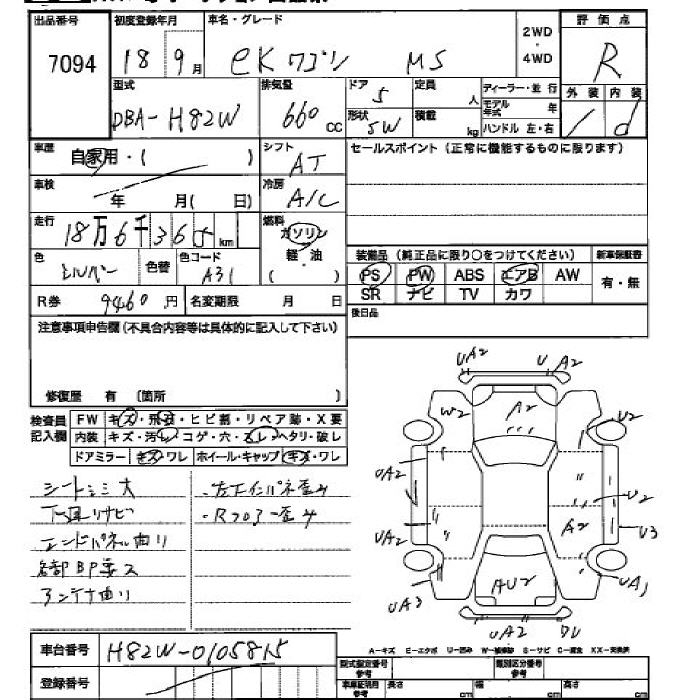 出品番号 初度登録年月 車名・グレード 2WD・4WD 評価点
7094 18 9月 eKワゴン MS R
型式 排気量 ドア 定員 ディーラー・並行 外装 内装
DBA-H82W 660cc 5 人 モデル年式 年 / d
形状 5W 積載 kg ハンドル 左・右
車歴 自家用・( ) シフト AT セールスポイント (正常に機能するものに限ります)
車検 年 月( 日) 冷房 A/C
走行 18万6千365km 燃料 ガソリン 軽・油 ( )
色 シルバー 色替 色コード A31
装備品 (純正品に限り○をつけてください) 新車保証書
PS PW ABS エアB AW 有・無
SR ナビ TV カワ
R券 9460円 名変期限 月 日
後日品
注意事項申告欄(不具合内容等は具体的に記入して下さい)
修復歴 有 〔箇所 〕
検査員記入欄
FW キズ・飛石・ヒビ割・リペア跡・X要
内装 キズ・汚れ・コゲ・穴・スレ・ヘタリ・破レ
ドアミラー キズ・ワレ ホイール・キャップ キズ・ワレ
シートシミ大
下廻りサビ
エンドパネル曲り
各部BP要ス
アンテナ曲り
・左下インパネ歪み
・Rフロアー歪み
UA2 U A2
W2 A2 U2
UA2 U2
UA2 A2 U3
UA3 AU2 UA1
UA2
A-キズ E-エクボ U-凹み W-補修跡 S-サビ C-腐食 XX-交換済
車台番号 H82W-0105815
登録番号
型式指定番号 参考 類別区分番号 参考
車車証明 参考 長さ cm 幅 cm 高さ cm